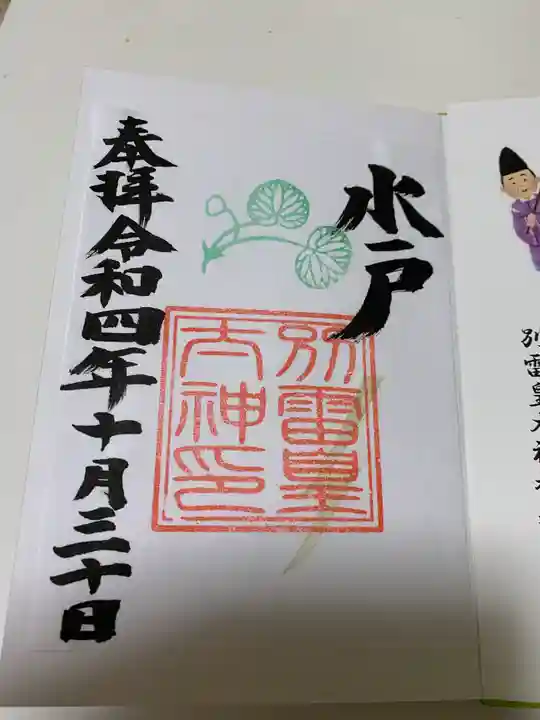 別雷皇太神
水戸
別雷皇
太神印
奉拝令和四年十月三十日